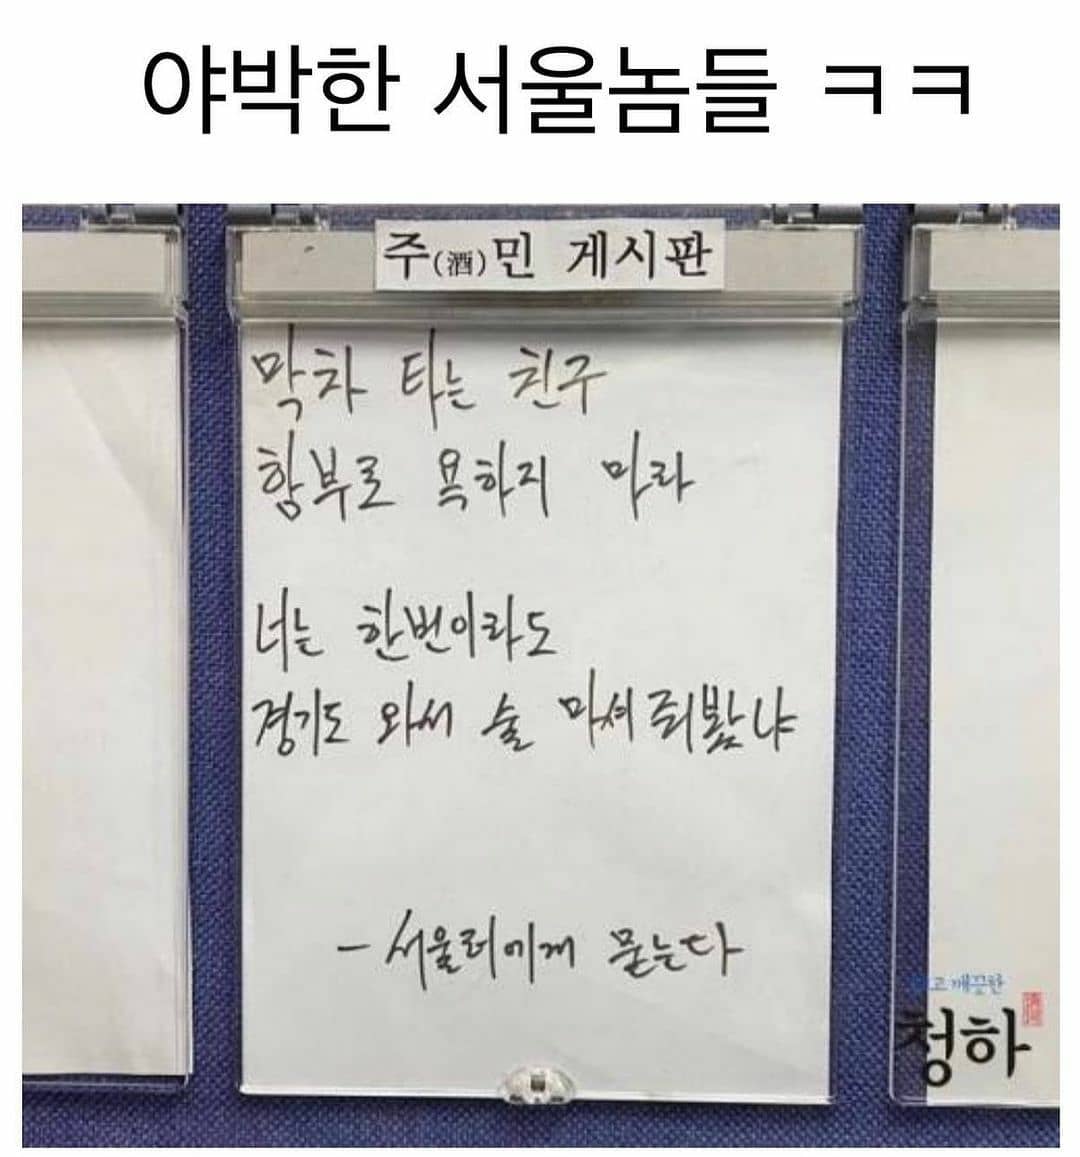 야박한 서울놈들 ㅋㅋ
주(酒)민 게시판
막차 타는 친구
함부로 욕하지 마라
너는 한번이라도
경기도 와서 술 마셔줘봤냐
- 서울러에게 묻는다
고 깨끗한
청하